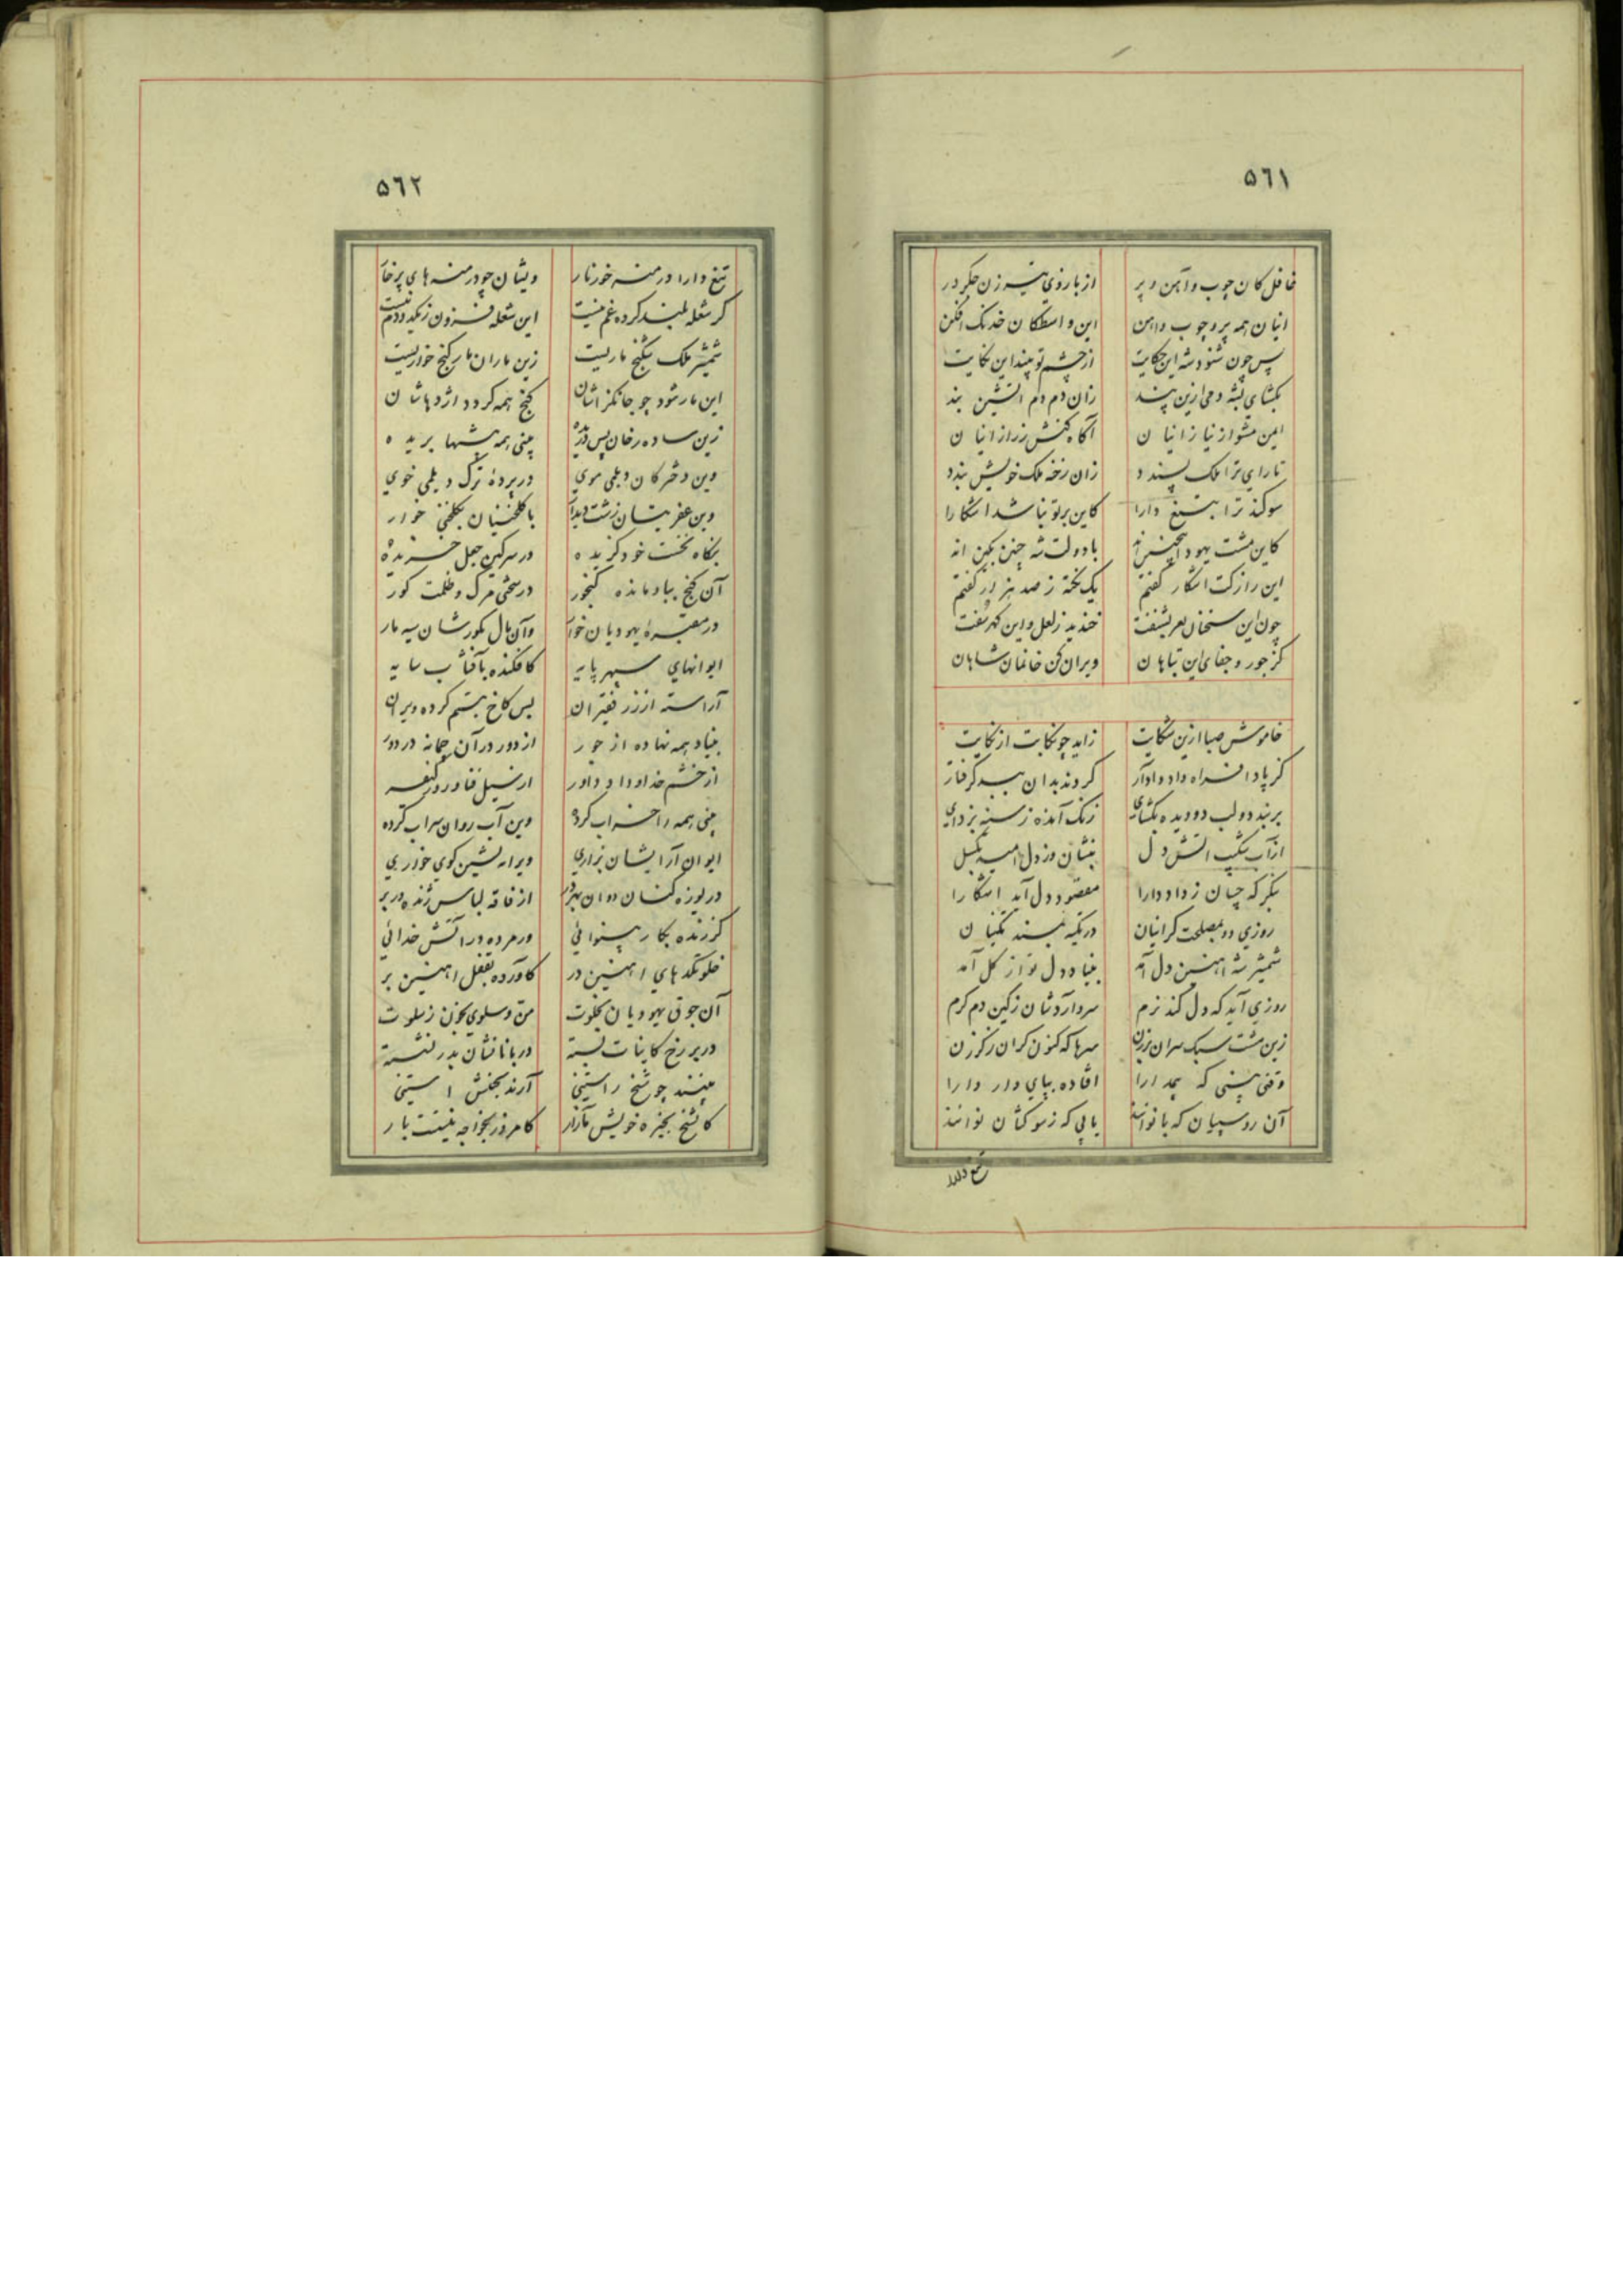 ۵٦۱
غافل کان چوب و آهن و پر از بازوی تیر زن جگر در
اینان همه پر و چوب و اهن این واسطکان خدنک افکن
پس چون شنود شه این حکایت از چشم تو بیند این نکایت
بکشای لبش دمی ازین پند زان دم دم اتشین
ایمن مشو از نیاز اینان آکاه کنش ز راز اینان
تا رای ترا ملک پسندد زان رخنه ملک خویش بندد
سوکند ترا بتیغ دارا کاین بر تو نباشد اشکارا
کاین مشت یهود با دولت شه چنین بکین اند
این راز کت اشکار کفتم یک نکته ز صد هزار کفتم
چون این سخنان بشنفت خندید ز لعل و این کهر سفت
کز جور و جفای این تباهان ویران کن خانمان شاهان
خاموش صبا ازین شکایت زاید چو نکایت از نکایت
کز پاداش کردند بدان کرفتار
بربند دو لب دو دیده بکشای زنک آمده ز سینه بزدای
از آب شکیب اتش دل بنشان وز دل امید مکسل
بنکر که چسان ز داد دارا مقصود دل آید اشکارا
روزی دو بمصلحت کر اینان در تکیه
شمشیر شه اهنین دل آمد بنیاد دل تو از کل آمد
روزی آید که دل کند نرم سر وآردشان ز کین دم کرم
زین مشت سبک سران سرها که کنون کران
وقتی بینی که بی مدارا افتاده بپای دار دارا
آن روسپیان که بانوانند
تیغ دارا
۵٦۲
تیغ دارا در منه خور نار ویشان چو درمنه های پر خار
کر شعله بلند کرده غم نیست این شعله فزون ز یکدو دم نیست
شمشیر ملک شکنج ماریست زین ماران مار کنج خواریست
این مار شود چو جانکزاشان کنج همه کردد اژدهاشان
زین ساده رخان پس دریده بینی همه پشمها بریده
وین دخترکان دیلمی موی در پرده ترک دیلمی خوی
وین عفریتان زشت دیدار با کلخنیان بکلخن خوار
نکاه نخست خود کزیده در سرکین جعل خزیده
آن کنج بباد مانده کنجور در سختی مرک و ظلمت کور
در مقبره یهودیان خوار وآن مال بکورشان سیه مار
ایوانهای سپهر پایه کافکنده بآفتاب سایه
آراسته از زر فقیران بس کاخ بستم کرده ویران
بنیاد همه نهاده از جور از دور در آن چمانه در دور
از خشم خداوند داور از سیل فنا
بینی همه را خراب کرده وین آب روان سراب کرده
ایوان آرایشان بزاری ویرانه نشین کوی خواری
دریوزه کنان دوان بهر در از فاقه لباس ژنده در بر
کرزنده بکار بینوائی ور مرده در آتش خدائی
خلوتکدهای اهنین در کآورده بقفل اهنین بر
آن جوقی یهودیان بخلوت من و سلوی بخون ز سلوت
در بر رخ کاینات بسته دربانانشان بدر نشسته
بینند چو شیخ راستینی آرند بجنش استینی
کا شیخ بخیره خویش مآزار کامروز بخواجه نیستت بار